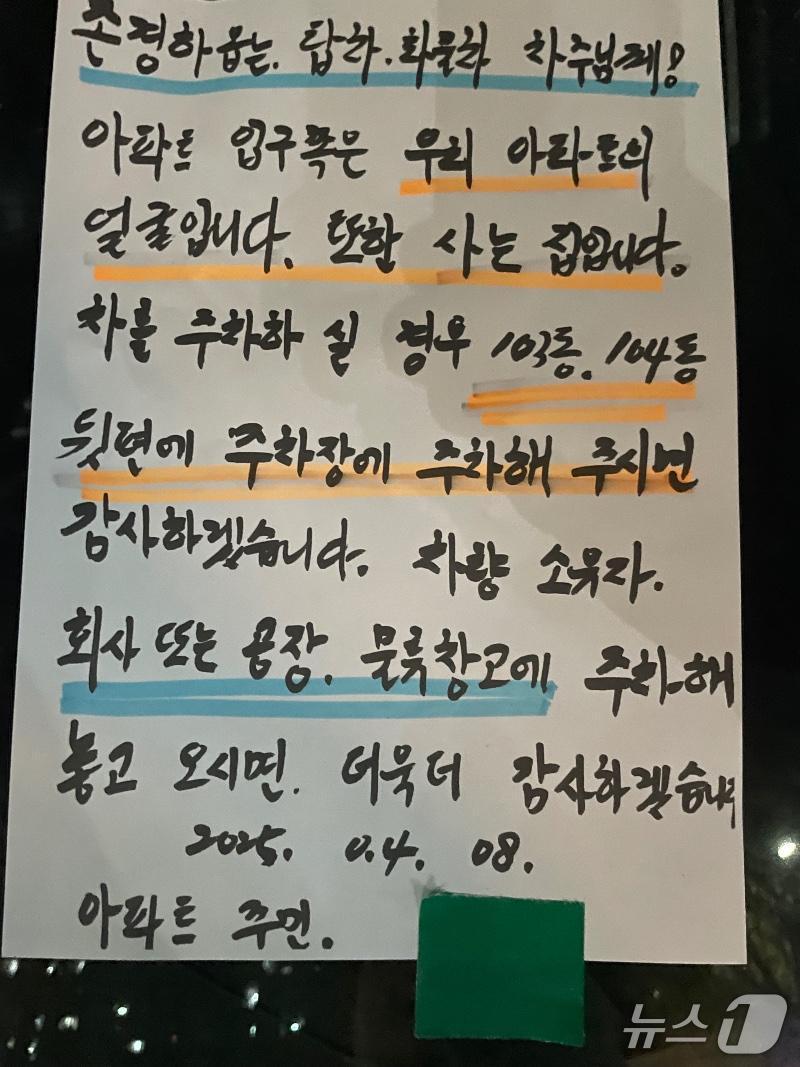 존경하옵는. 탑차. 화물차 차주님께!
아파트 입구쪽은 우리 아파트의
얼굴입니다. 또한 사는 집입니다.
차를 주차하 실 경우 103동. 104동
뒷편에 주차장에 주차해 주시면
감사하겠습니다. 차량 소유자.
회사 또는 공장. 물류창고에 주차해
놓고 오시면. 더욱더 감사하겠습니다
2025. 0.4. 08.
아파트 주민.
뉴스1